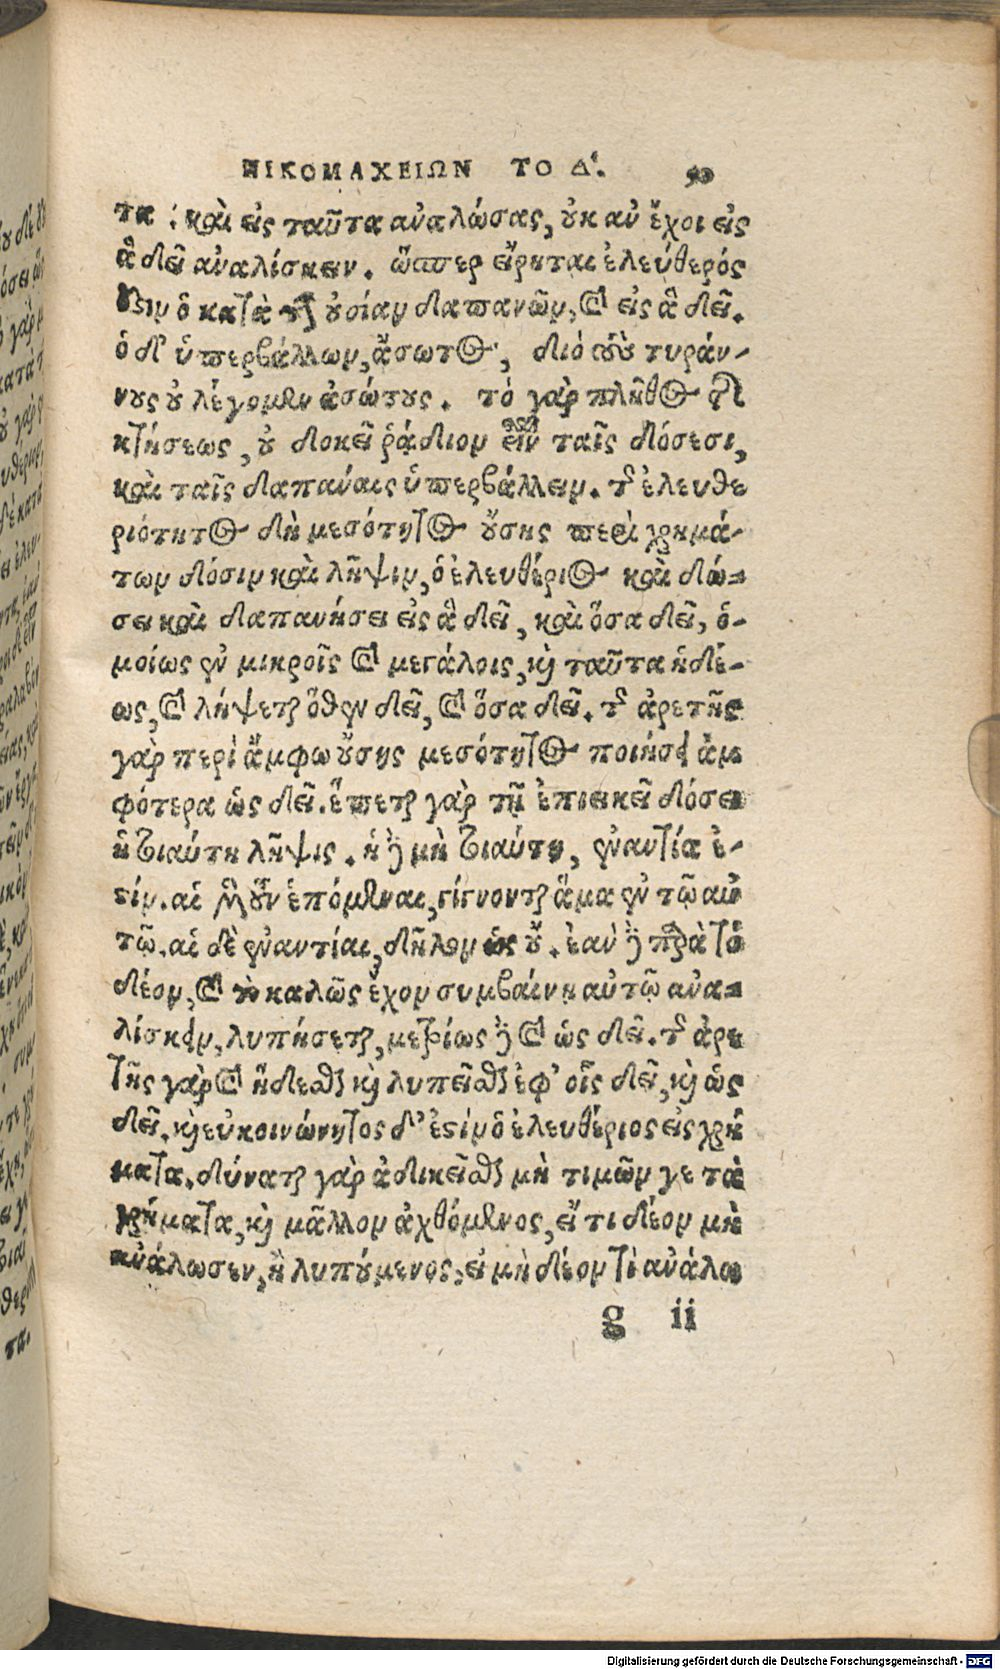 ΝΙΚΟΜΑΧΕΙΩΝ ΤΟ Δ'. 50
τα· καὶ εἰς ταῦτα ἀναλώσας, οὐκ ἂν ἔχοι εἰς
ἃ δεῖ ἀναλίσκειν. ὥσπερ εἴρηται ἐλεύθερός
ἐστιν ὁ κατὰ τὴν οὐσίαν δαπανῶν, καὶ εἰς ἃ δεῖ.
ὁ δ' ὑπερβάλλων, ἄσωτος, διὸ τοὺς τυράν-
νους οὐ λέγομεν ἀσώτους. τὸ γὰρ πλῆθος τῆς
κτήσεως, οὐ δοκεῖ ῥᾴδιον εἶναι ταῖς δόσεσι,
καὶ ταῖς δαπάναις ὑπερβάλλειν. τῆς ἐλευθε
ριότητος δὴ μεσότητος οὔσης περὶ χρημά-
των δόσιν καὶ λῆψιν, ὁ ἐλευθέριος καὶ δώ-
σει καὶ δαπανήσει εἰς ἃ δεῖ, καὶ ὅσα δεῖ, ὁ-
μοίως ἐν μικροῖς καὶ μεγάλοις, καὶ ταῦτα ἡδέ-
ως, καὶ λήψεται ὅθεν δεῖ, καὶ ὅσα δεῖ. τῆς ἀρετῆς
γὰρ περὶ ἄμφω οὔσης μεσότητος ποιήσει ἀμ
φότερα ὡς δεῖ. ἕπεται γὰρ τῇ ἐπιεικεῖ δόσει
ἡ τοιαύτη λῆψις. ἡ δὲ μὴ τοιαύτη, ἐναντία ἐ-
στίν. αἱ μὲν οὖν ἑπόμεναι, γίγνονται ἅμα ἐν τῷ αὐ
τῷ. αἱ δὲ ἐναντίαι, δῆλον ὡς οὔ. ἐὰν δὲ παρὰ τὸ
δέον, καὶ τὸ καλῶς ἔχον συμβαίνῃ αὐτῷ ἀνα-
λίσκειν, λυπήσεται, μετρίως δὲ καὶ ὡς δεῖ. τῆς ἀρε
τῆς γὰρ καὶ ἥδεσθαι καὶ λυπεῖσθαι ἐφ' οἷς δεῖ, καὶ ὡς
δεῖ. καὶ εὐκοινώνητος δ' ἐστὶν ὁ ἐλευθέριος εἰς χρή
ματα. δύναται γὰρ ἀδικεῖσθαι μὴ τιμῶν γε τὰ
χρήματα, καὶ μᾶλλον ἀχθόμενος, εἴ τι δέον μὴ
ἀνάλωσεν, ἢ λυπούμενος, εἰ μὴ δέον τὶ ἀνάλω
g ii
Digitalisierung gefördert durch die Deutsche Forschungsgemeinschaft - DFG